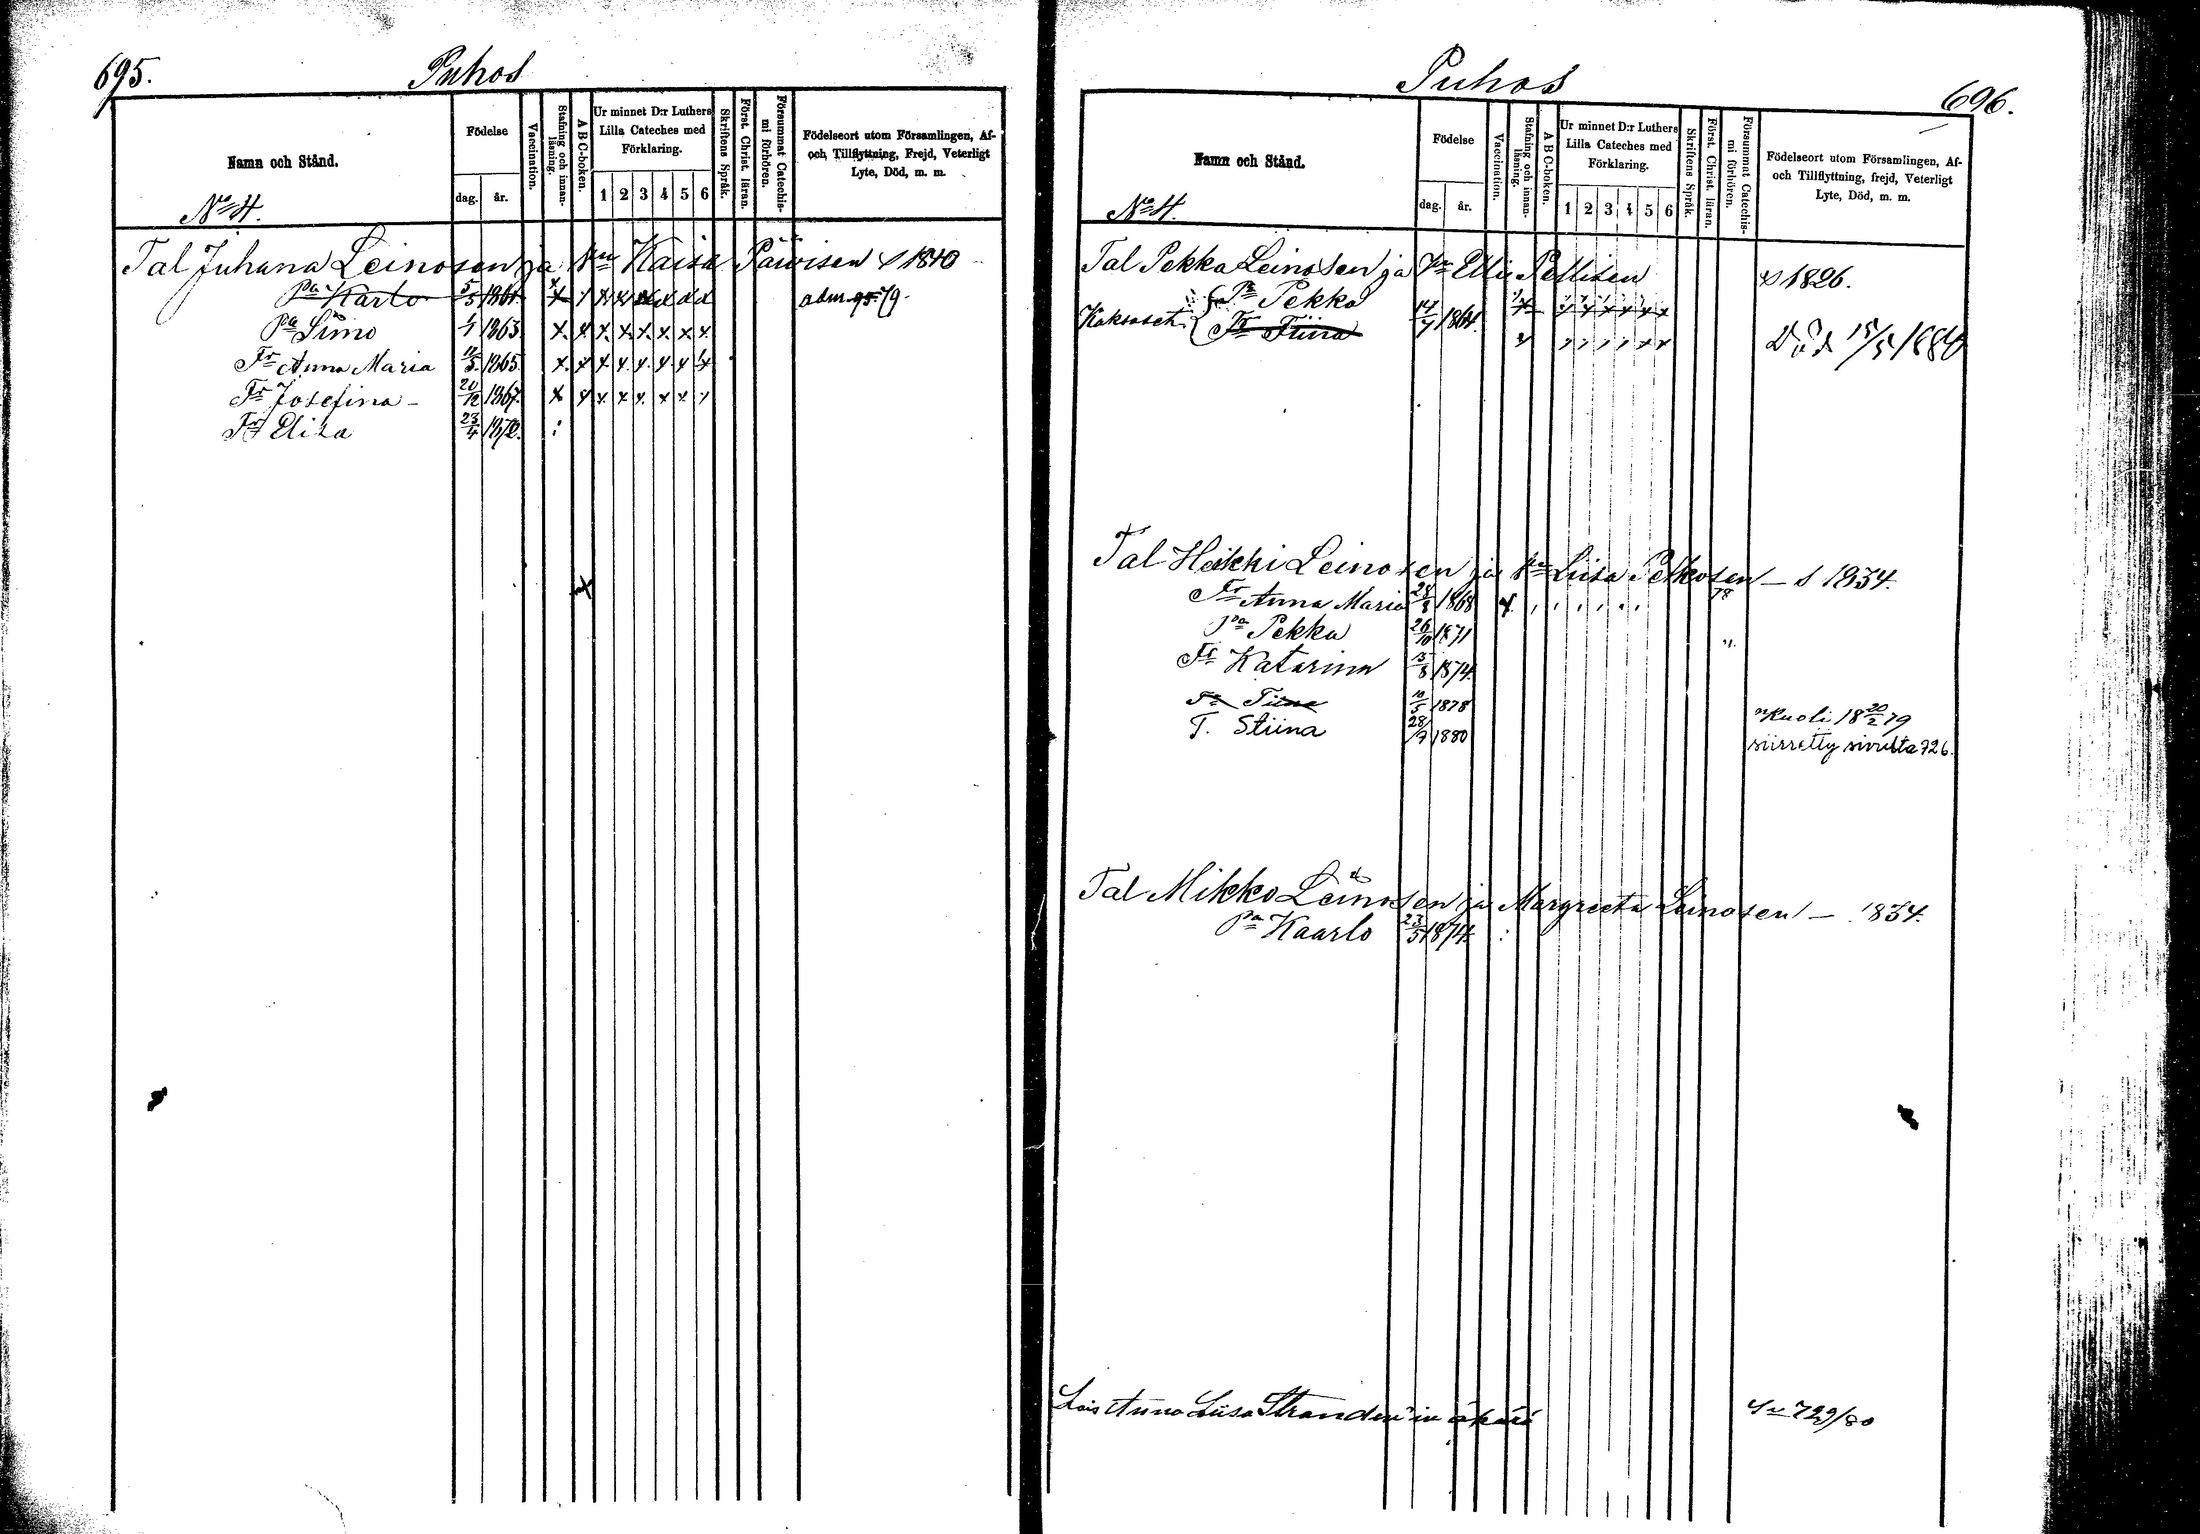 695.
Puhos
Namn och Stånd.
Födelse
dag.
år.
Vaccination.
Stafning och innan-
läsning.
A B C-boken.
Ur minnet D:r Luthers
Lilla Cateches med
Förklaring.
1 2 3 4 5 6
Skriftens Språk.
Först. Christ. läran.
Försummat Catechis-
mi förhören.
Födelseort utom Församlingen, Af-
och Tillflyttning, Frejd, Veterligt
Lyte, Död, m. m.
No 4.
Tal Juhana Leinosen ja Kaisa s 1840
Pa Karlo 5/5 1861. x x x x x x x adm. 79.
Pa Simo 1/1 1863. x. x x. x. x. x. x x.
Fr Anna Maria 1865. x. x x x. x. x. x x
Fr Josefina – 20/12 1867. x x x. x x. x x.
Fr Eliza 23/4 1872. :
x
Puhos
696.
Namn och Stånd.
Födelse
dag.
år.
Vaccination.
Stafning och innan-
läsning.
A B C-boken.
Ur minnet D:r Luthers
Lilla Cateches med
Förklaring.
1 2 3 4 5 6
Skriftens Språk.
Först. Christ. läran.
Försummat Catechis-
mi förhören.
Födelseort utom Församlingen, Af-
och Tillflyttning, frejd, Veterligt
Lyte, Död, m. m.
No 4.
Tal Pekka Leinosen ja Pellisen s 1826.
Pa Pekka
Kaksoset. Fr Tiina 1864. Död 15/5 1880
Tal Heikki Leinosen ja Liisa Petkosen – s 1834.
Fr Anna Maria 28/8 1868 x. 78
Pa Pekka 26/10 1871 ".
Fr Katarina 13/8 1874.
Fr Tiina 10/5 1878 Kuoli 18 20/2 79
T. Stiina 28/7 1880 siirretty sivulta 726.
Tal Mikko Leinosen ja Margreeta Leinosen – 1834.
Pa Kaarlo 23/5 1874. :
Lois Anna Liisa Stranden'in äpärä S. 729/80